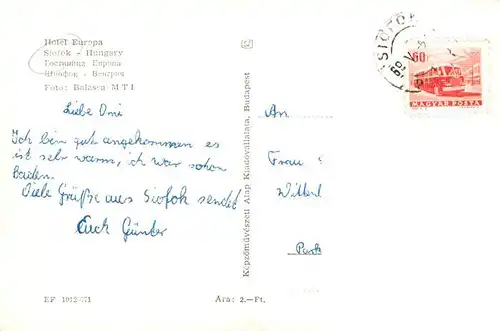 Hotel Europa
Siofok - Hungary
Гостиница Европа
Шиофок - Венгрия
Foto: Balassa MTI
Liebe Omi
Ich bin gut angekommen es
ist sehr warm, ich war schon
baden.
Viele Grüße aus Siofok sendet
Euch Günter
EF 1012-671
Ára: 2.-Ft.
Képzőművészeti Alap Kiadóvállalata, Budapest
SIÓFOK
60
MAGYAR POSTA
An
Frau